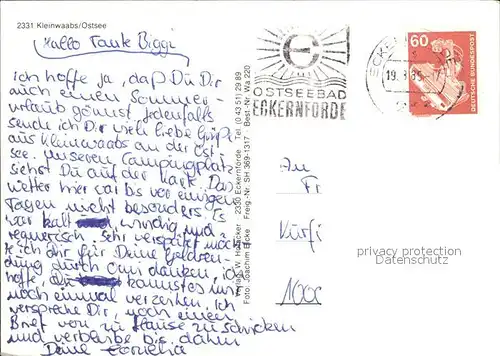 2331 Kleinwaabs/Ostsee
Hallo Tante Biggi
ich hoffe ja, daß Du Dir
auch einen Sommer-
urlaub gönnst, jedenfalls
sende ich Dir viele liebe Grüße
aus Kleinwaabs an der Ost-
see. Unseren Campingplatz
siehst Du auf der Karte. Das
Wetter hier war bis vor einigen
Tagen nicht besonders. Es
war kalt windig und
regnerisch. Sehr verspätet möch-
te ich Dir für Deine
dung durch danken, ich
hoffe, Du kannst es mir
noch einmal verzeihen. Ich
verspreche Dir, noch einen
Brief von zu Hause zu schicken
und verbleibe bis dahin
Deine Cornelia
Verlag W. 2330 Eckernförde Tel. (0 43 51) 2 29 89
Foto: Joachim Freig.-Nr. SH 369-1317 Best.-Nr. Wa 220
OSTSEEBAD
ECKERNFÖRDE
60
DEUTSCHE BUNDESPOST
An
Fr
100X
privacy protection
Datenschutz